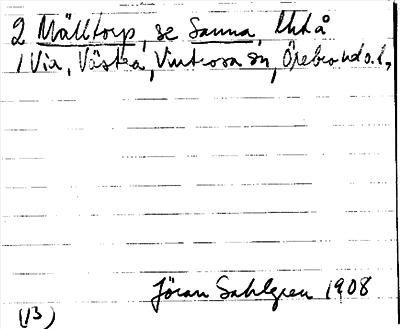 2 Mälltorp, se Sanna, Utå
1 Via, Västra, Vintrosa sn, Örebro hd o. l.,
Jöran Sahlgren 1908
(13)